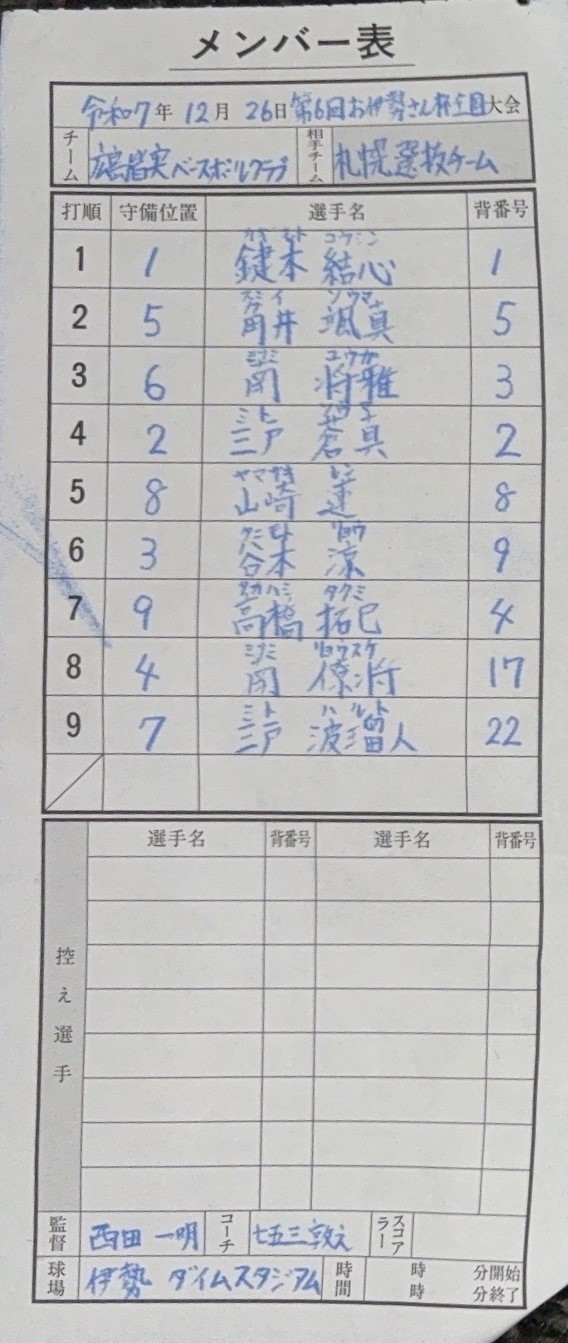 メンバー表
令和7年 12月 26日 第6回お伊勢さん杯全国大会
チーム ベースボールクラブ 相手チーム 札幌選抜チーム
打順 守備位置 選手名 背番号
カギモト コウシン
1 1 鍵本 結心 1
スミイ ソウマ
2 5 角井 颯真 5
ミナミ ユウガ
3 6 南 将雅 3
ミト
4 2 三戸 倉真 2
ヤマサキ レン
5 8 山崎 蓮 8
タニモト リョウ
6 3 谷本 涼 9
タカハシ タクミ
7 9 高橋 拓巳 4
ミナミ リョウスケ
8 4 南 僚将 17
ミト ハルト
9 7 三戸 波瑠人 22
控え選手 選手名 背番号 選手名 背番号
監督 西田 一明 コーチ 七五三 スコアラー
球場 伊勢 ダイムスタジアム 時間 時 分開始
時 分終了